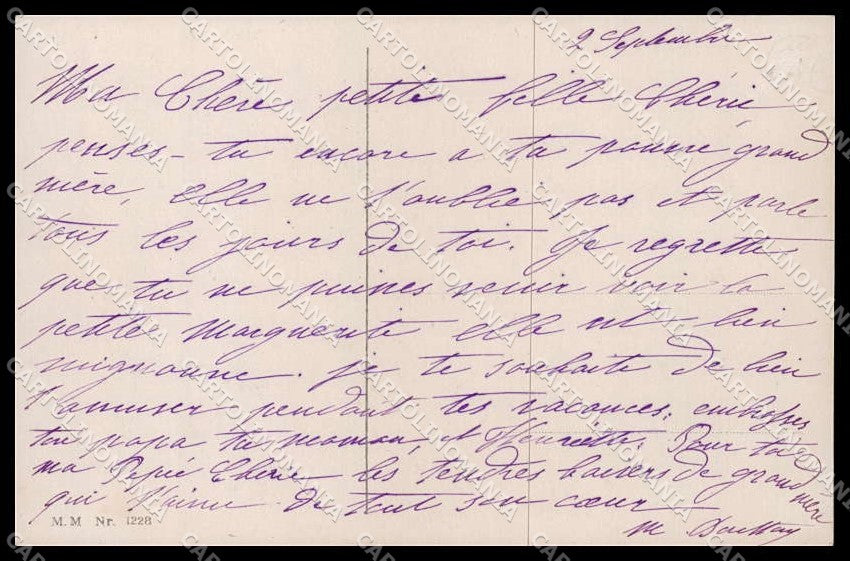 2 Septembre
Ma Chère petite fille Chérie,
penses-tu encore a ta pauvre grand
mère, elle ne t'oublie pas et parle
tous les jours de toi. Je regrette
que tu ne puisses venir voir la
petite Marguerite elle est bien
mignonne. je te souhaite de bien
t'amuser pendant tes vacances; embrasses
ton papa ta maman, et Henriette. Pour toi
ma Chérie les tendres baisers de grand mère
qui t'aime de tout son cœur
M
M. M Nr. 1228
CARTOLINOMANIA